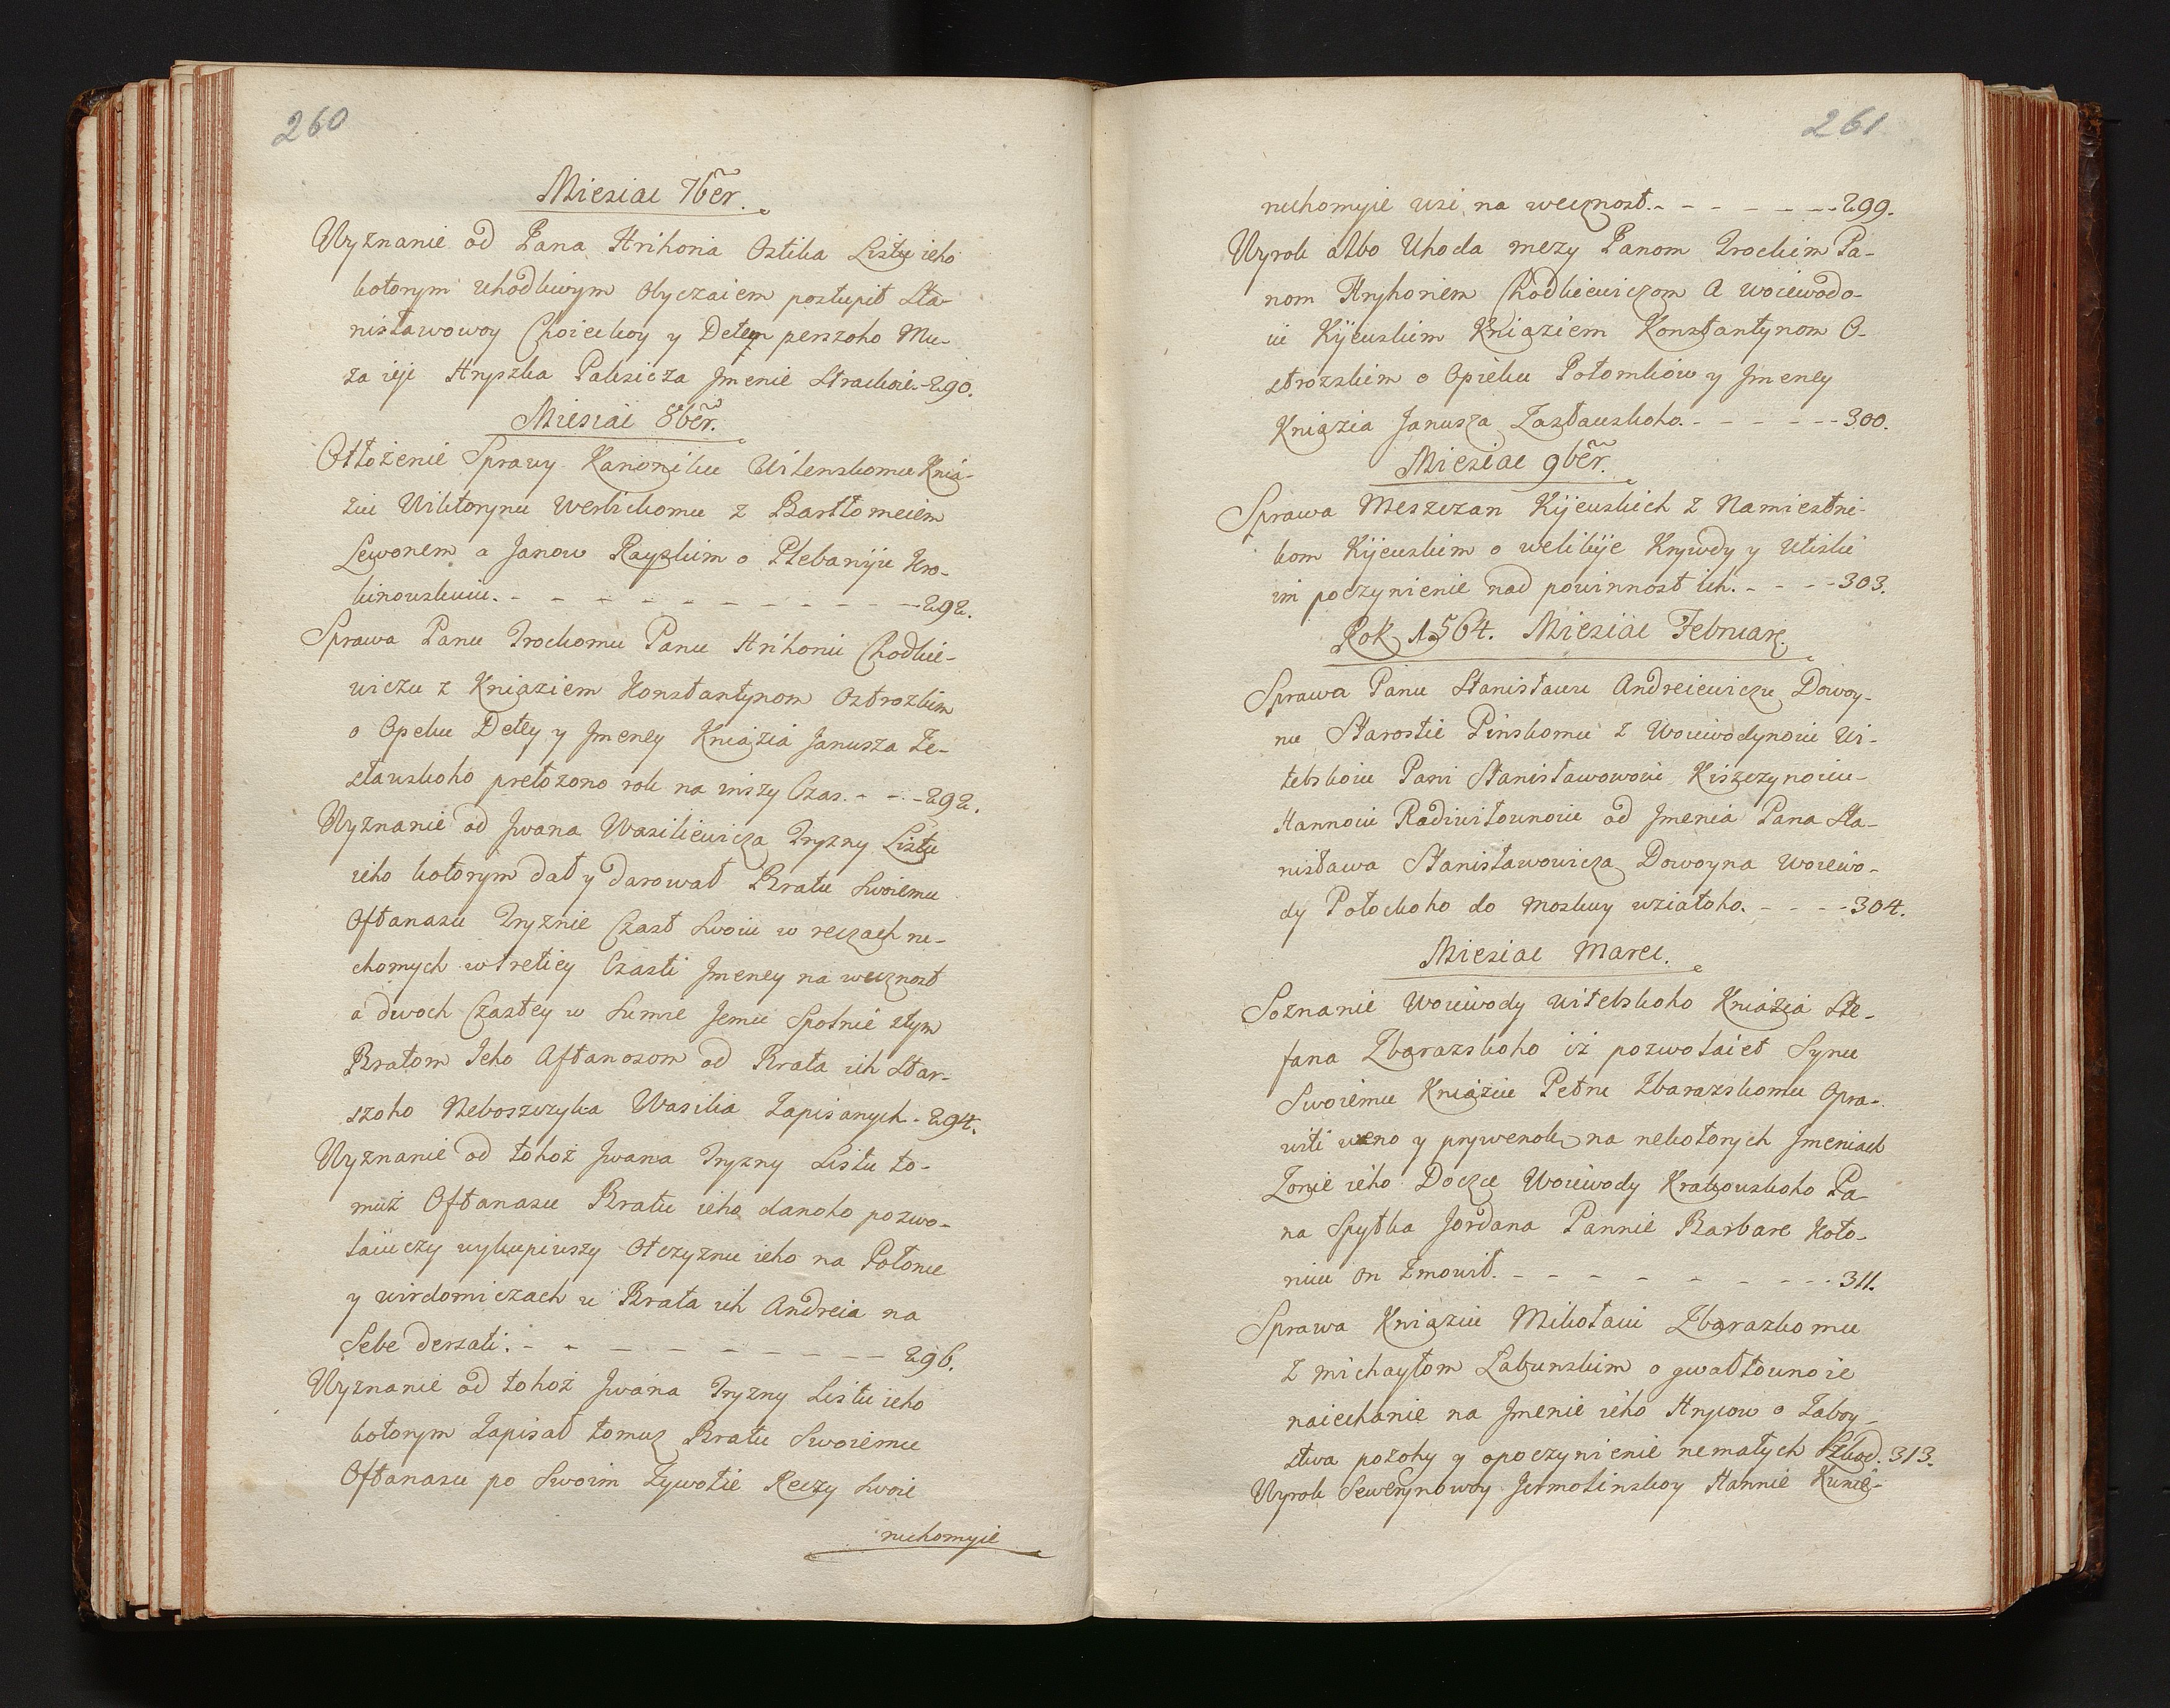 260
Miesiac 7ber.
Wyznanie od Pana Hrihoria Ostika Listu ieho
kotorym uhodliwym Obyczaiem postupił Sta-
nisławowoy Choieckoy y Detey perszoho Mu-
ża ieje Hryszka Paksicza Jmenie Strackoie. 290.
Miesiac 8ber.
Otłożenie Sprawy Kanoniku Wilenskomu Knia-
ziu Wiktorynu Werbickomu z Bartłomeiem
Lewonem a Janow Rayskim o Plebaniju Kro-
kinowskuiu. - - - - - - - - - - 292.
Sprawa Panu Trockomu Panu Hrihoriu Chodkie-
wiczu z Kniaziem Konstantynom Ostrozkim
o Opeku Detey y Jmeney Kniazia Janusza Ze-
sławskoho prełożono rok na inszy Czas. - - - 292.
Wyznanie od Jwana Wasiliewicza Tryzny Listu
ieho kotorym dał y darował Bratu Swoiemu
Oftanasu Tryznie Czast Swoiu w reczach ru-
chomych w tretiey Czasti Jmeney na wecznost
a dwoch Czastey w Sumie Jemu Spolnie ztym
Bratom Jeho Aftanosom od Brata ich Star-
szoho Neboszczyka Wasilia Zapisanych. 294.
Wyznanie od tohoż Jwana Tryzny Listu to-
muż Oftanasu Bratu ieho danoho pozwo-
laiuczy wykupiwszy Otczyznu ieho na Połonie
y wirdomiczach u Brata ich Andreia na
Sebe derżati. - - - - - - - - 296.
Wyznanie od tohoż Jwana Tryzny Listu ieho
kotorym Zapisał tomuż Bratu Swoiemu
Oftanasu po Swoim Żywotie Reczy Swoie
ruchomyie
261
ruchomyie wsi na wecznost. - - - - - - - 299.
Wyrok albo Uhoda meży Panom Trockim Pa-
nom Hryhoriem Chodkiewiczom A woiewodo-
iu Kijewskim Kniaziem Konstantynom O-
strozskim o Opieku Potomkow y Jmeney
Kniazia Janusza Zasławskoho. - - - - - - 300.
Miesiac 9ber.
Sprawa Meszczan Kijewskich z Namiestni-
kom Kijewskim o welikije Krywdy y Utiski
im poczynienie nad powinnost ich. - - - - 303.
Rok 1564. Miesiac Februar.
Sprawa Panu Stanisławu Andreiewiczu Dowoy-
nu Starostie Pinskomu z Woiewodynoiu Wi-
tebskoiu Pani Stanisławowoiu Kiszczynoiu
Hannoiu Radiwiłownoiu od Jmenia Pana Sta-
nisława Stanisławowicza Dowoyna Woiewo-
dy Połockoho do Moskwy wziatoho. - - - - 304.
Miesiac Marec.
Soznanie Woiewody witebskoho Kniazia Ste-
fana Zbarazskoho iż pozwolaiet Synu
Swoiemu Kniaziu Petru Zbarazskomu Opra-
witi weno y prywenok na nekotorych Jmeniach
Żonie ieho Doczce Woiewody Krakowskoho Pa-
na Spytka Jordana Pannie Barbare Koto-
ruiu on Zmowił. - - - - - - - - - 311.
Sprawa Kniaziu Mikołaiu Zbarazkomu
z Michayłom Łabunskim o gwałtownoie
naiechanie na Jmenie ieho Hrycow o Zaboy-
stwa pożohy y opoczynienie nemałych Szkod. 313.
Wyrok Sewerynowoy Jermolinskoy Hannie Kunie-